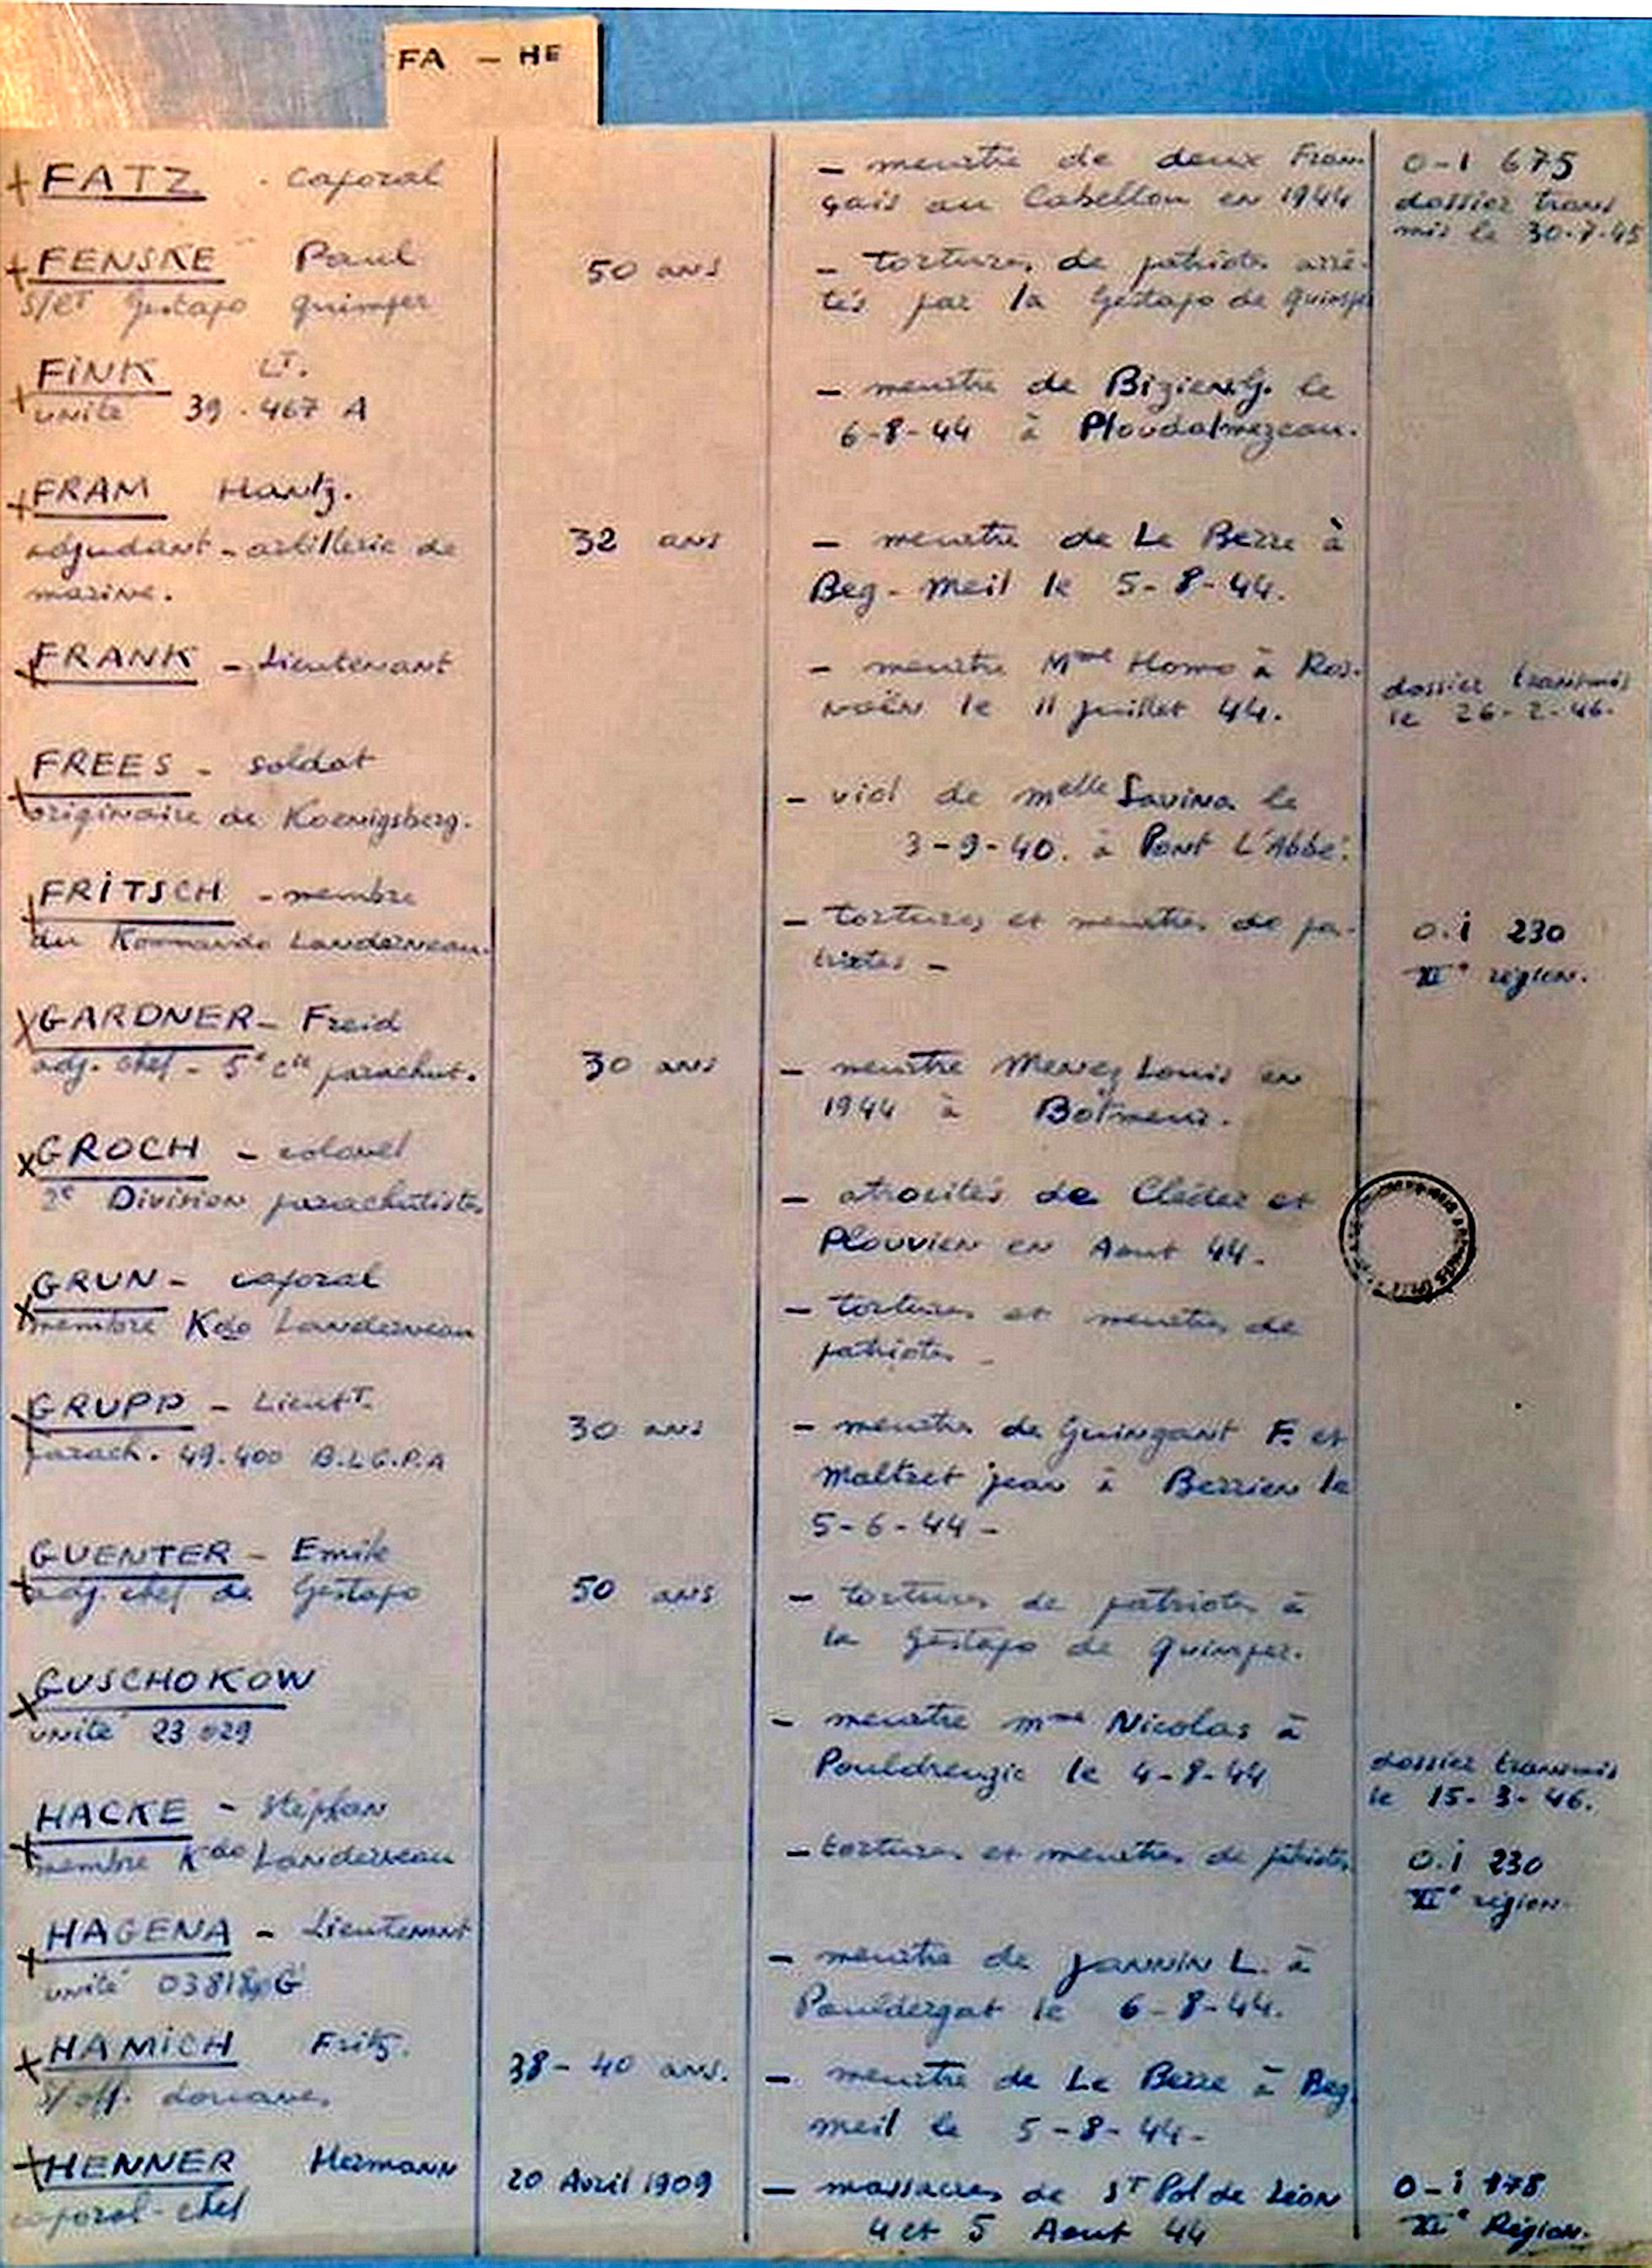 FA - HE
+ FATZ - caporal
- meurtre de deux Fran-
çais au Cabellou en 1944
0-1 675
dossier trans
mis le 30-7-45
+ FENSKE Paul
S/Lt Gestapo Quimper
50 ans
- tortures de patriotes arrê-
tés par la Gestapo de Quimper
+ FINK LT.
unité 39.467 A
- meurtre de Bizien G. le
6-8-44 à Ploudalmezeau.
+ FRAM Hantz.
adjudant - artillerie de
marine.
32 ans
- meurtre de Le Berre à
Beg-Meil le 5-8-44.
+ FRANK - Lieutenant
- meurtre Mme Homo à Ros-
noën le 11 juillet 44.
dossier transmis
le 26-2-46.
+ FREES - soldat
originaire de Koenigsberg.
- viol de Melle Savina le
3-9-40. à Pont L'Abbé.
+ FRITSCH - membre
du Kommando Landerneau.
- tortures et meurtres de pa-
triotes -
0.i 230
XIe région.
X GARDNER - Freid
adj. chef - 5e Cie parachut.
30 ans
- meurtre Menez Louis en
1944 à Botmeur.
X GROCH - colonel
2e Division parachutistes
- atrocités de Cléder et
Plouvien en Aout 44.
X GRUN - caporal
membre Kdo Landerneau
- tortures et meurtres de
patriotes -
X GRUPP - Lieutt.
parach. 49.400 B.L.G.P.A
30 ans
- meurtres de Guingant F. et
Maltret jean à Berrien le
5-6-44 -
+ GUENTER - Emile
adj. chef de Gestapo
50 ans
- tortures de patriotes à
la Gestapo de Quimper.
X GUSCHOKOW
unité 23 029
- meurtre Mme Nicolas à
Pouldreuzic le 4-8-44
dossier transmis
le 15-3-46.
+ HACKE - Stephan
membre Kdo Landerneau
- tortures et meurtres de patriotes
0.i 230
XIe région.
+ HAGENA - Lieutenant
unité G
- meurtre de JANNIN L. à
Pouldergat le 6-8-44.
+ HAMICH Fritz.
s/off. douanes
38-40 ans.
- meurtre de Le Berre à Beg
meil le 5-8-44-
+ HENNER Hermann
caporal-chef
20 Avril 1909
- massacres de St Pol de Léon
4 et 5 Aout 44
0-i 178
XIe Région.